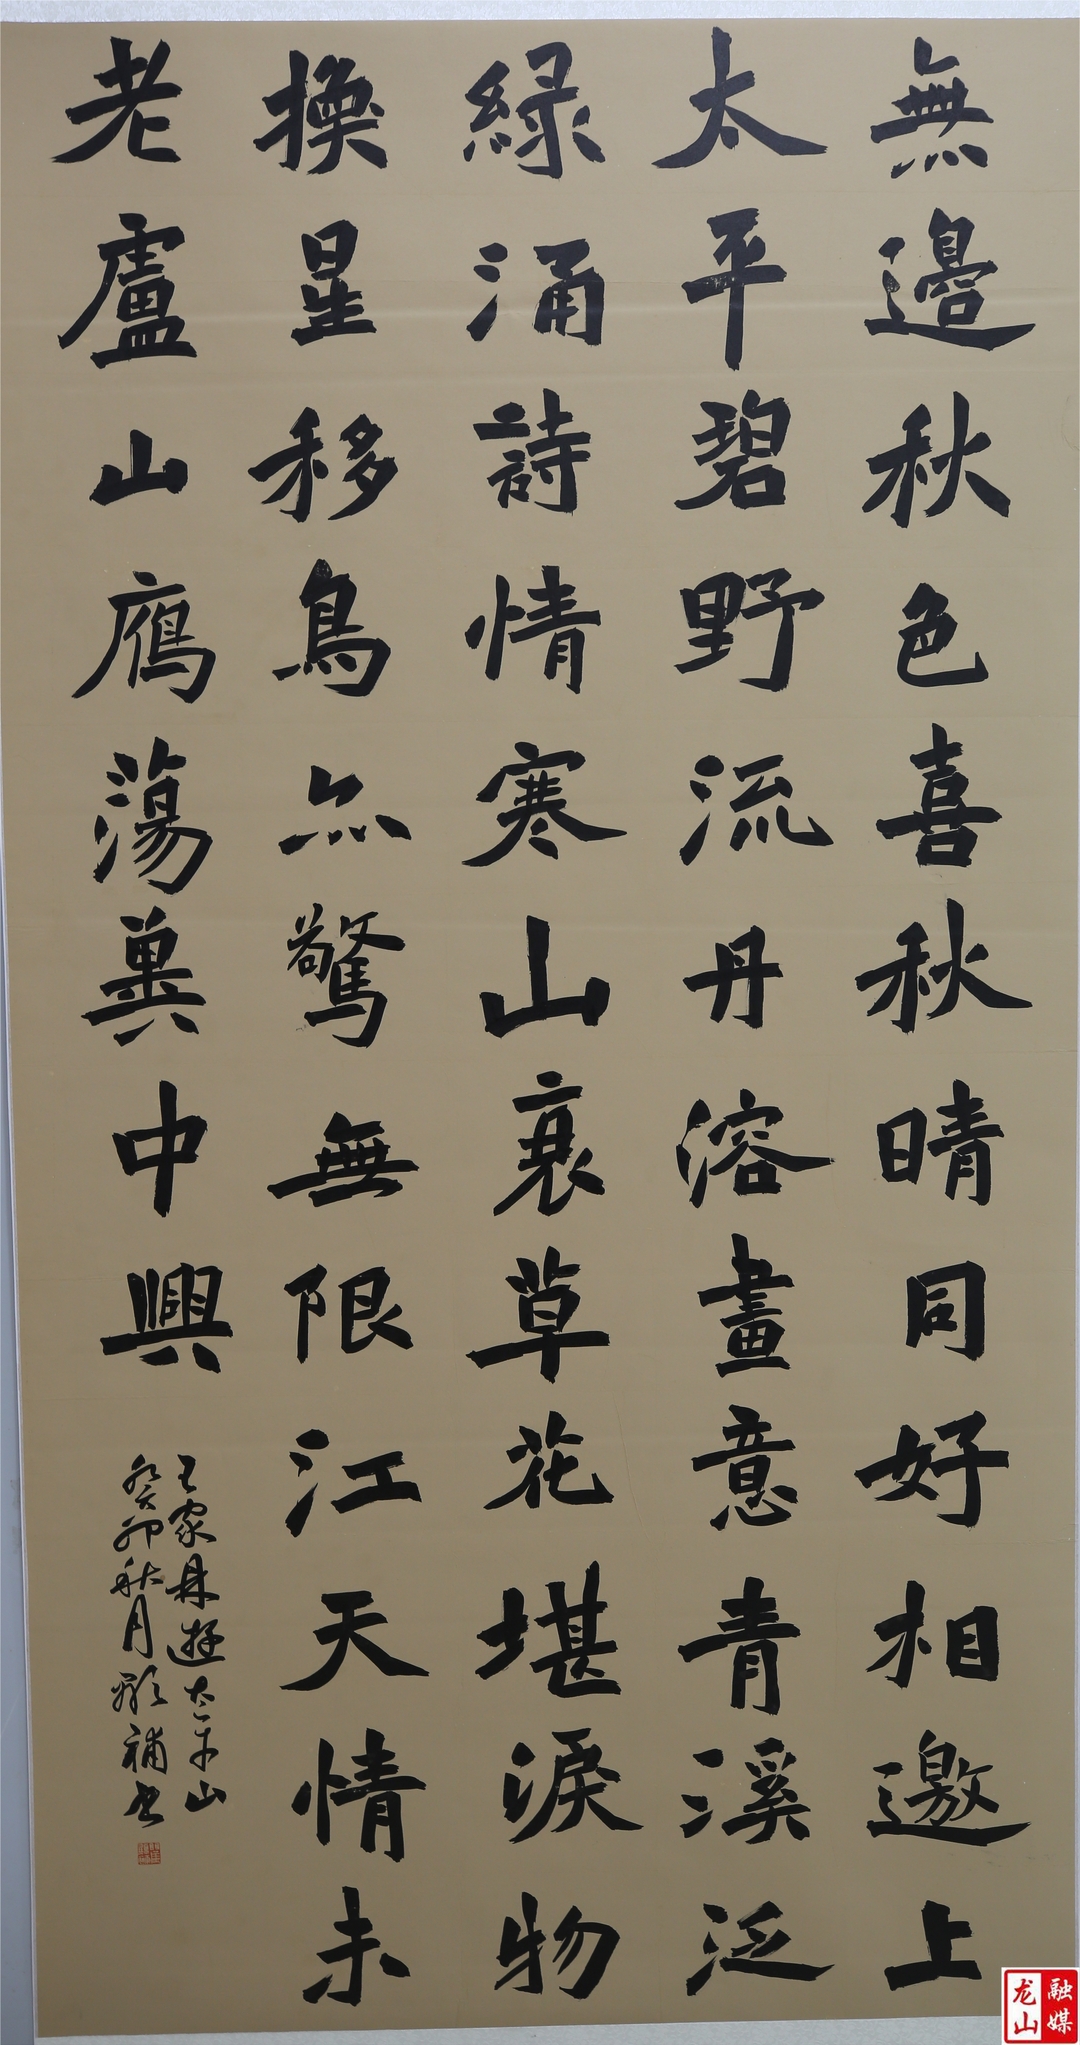 無邊秋色喜秋晴同好相邀上
太平碧野流丹溶畫意青溪泛
綠涌詩情寒山衰草花堪淚物
換星移鳥亦驚無限江天情未
老廬山鴈蕩冀中興
王家林遊太平山
癸卯秋月 補書
龙山
融媒